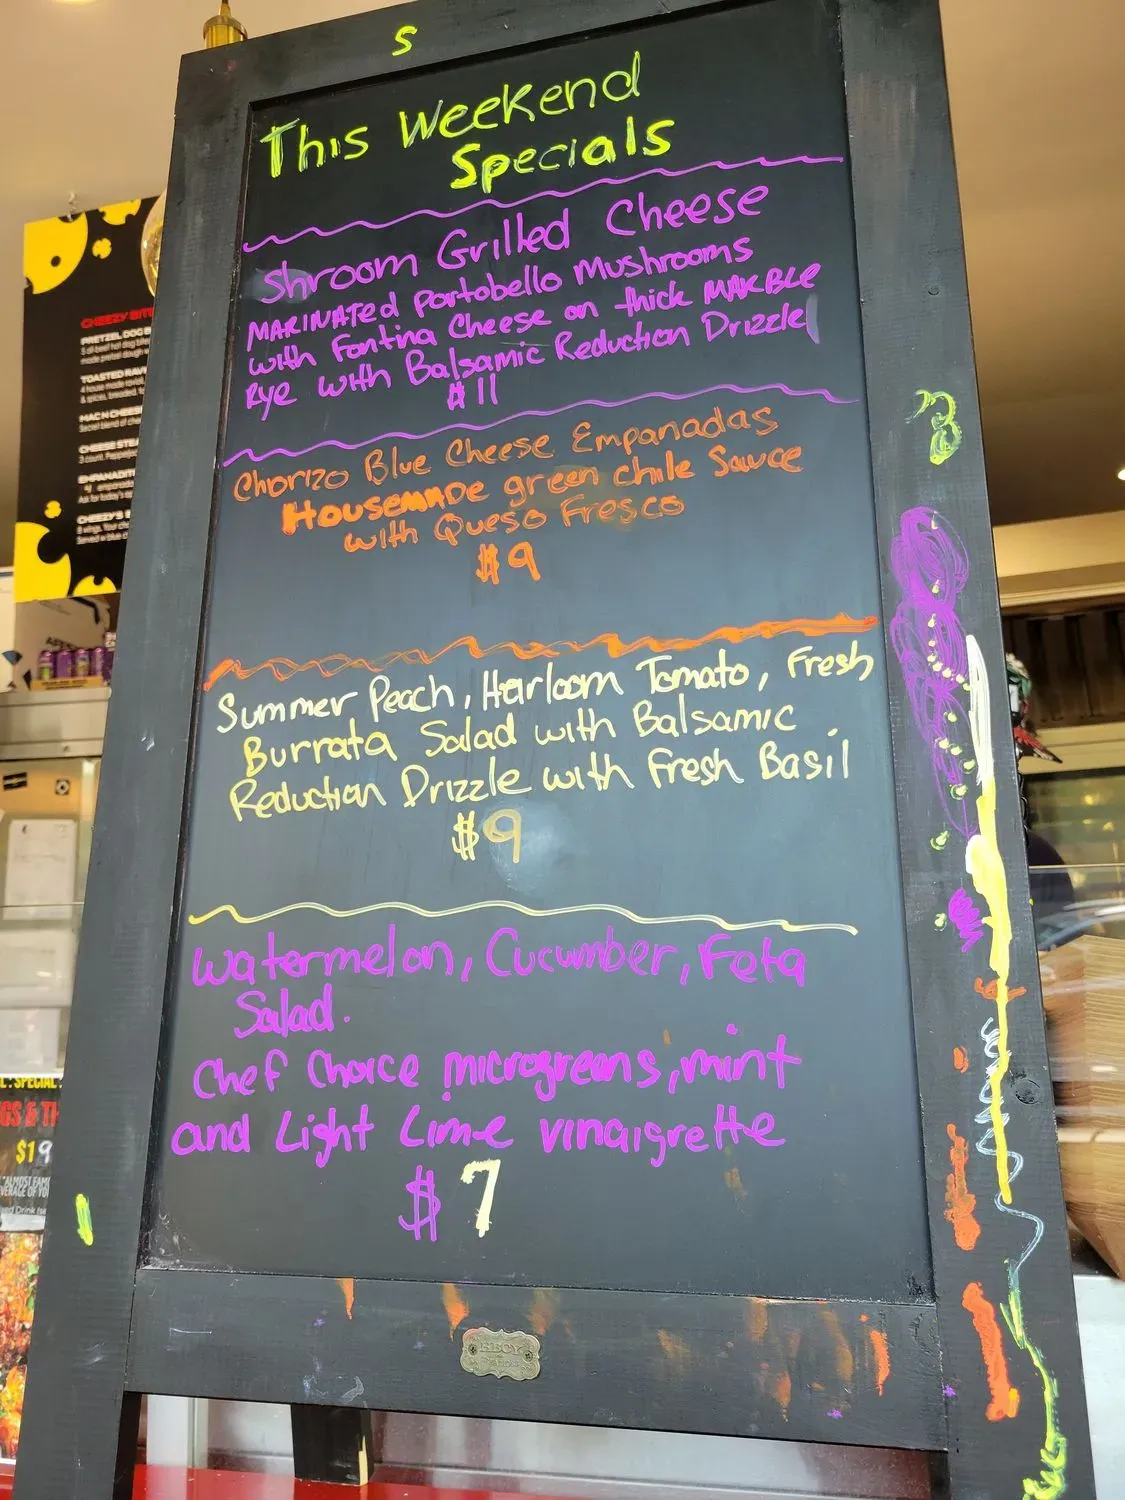 S
This Weekend
Specials
Shroom Grilled Cheese
MARINATed portobello Mushrooms
with Fontina Cheese on thick MARBLe
Rye with Balsamic Reduction Drizzle
$11
Chorizo Blue Cheese Empanadas
Housemade green chile Sauce
with Queso Fresco
$9
Summer Peach, Heirloom Tomato, Fresh
Burrata Salad with Balsamic
Reduction Drizzle with Fresh Basil
$9
Watermelon, Cucumber, Feta
Salad.
Chef Choice microgreens, mint
and Light Lime vinaigrette
$7
CHEEZY BIT
PRETZEL DOG B
TOASTED RAV
MAC N CHEES
CHEESE STEA
EMPANADIT
CHEEZY'S B
SPECIAL
GS & TH
$19